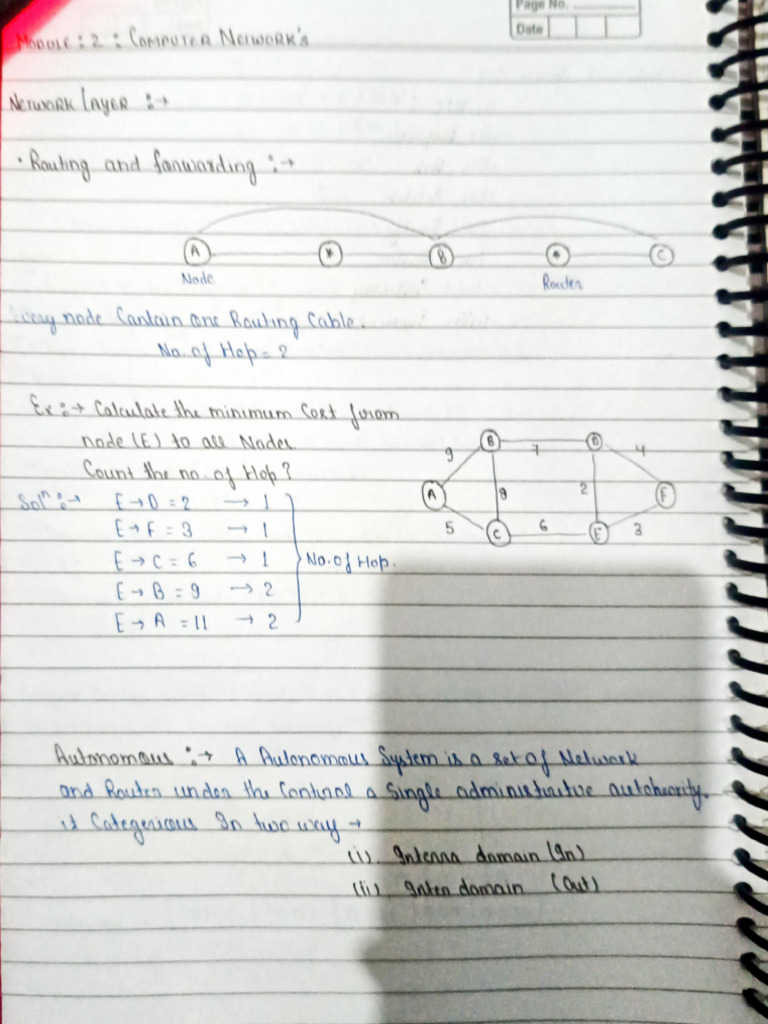 Page No.
Date
Module : 2 : Computer Network's
Network Layer :→
• Routing and forwarding :→
A * B * C
Node Router
Every node Contain one Routing Cable.
No. of Hop = 2
Ex :→ Calculate the minimum Cost from
node (E) to all Nodes
Count the no. of Hop ?
B D
9 7 4
A 9 2 F
5 6 3
C E
Solⁿ :→ E → D = 2 → 1
E → F = 3 → 1
E → C = 6 → 1 No. of Hop.
E → B = 9 → 2
E → A = 11 → 2
Autonomous :→ A Autonomous System is a set of Network
and Router under the Control a Single administrative authority.
it Categorious In two way →
(i). Interna domain (In)
(ii). Inter domain (Out)